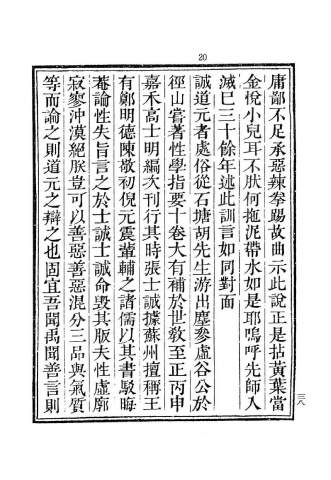 20
庸鄙不足承惡辣拳踢故曲示此說正是拈黃葉當
金悅小兒耳不肰何拖泥帶水如是耶嗚呼先師入
滅巳三十餘年述此訓言如同對面
誠道元者處俗從石塘胡先生游出塵參虛谷公於
徑山嘗著性學指要十卷大有補於世敎至正丙申
嘉禾高士明編次刊行其時張士誠據蘇州擅稱王
有鄭明德陳敬初倪元震輩輔之諸儒以其書駁晦
菴論性失旨言之於士誠士誠命毀其版夫性虛廓
寂寥沖漠絕朕豈可以善惡善惡混分三品與氣質
等而論之則道元之辯之也固宜吾聞禹聞善言則
三八